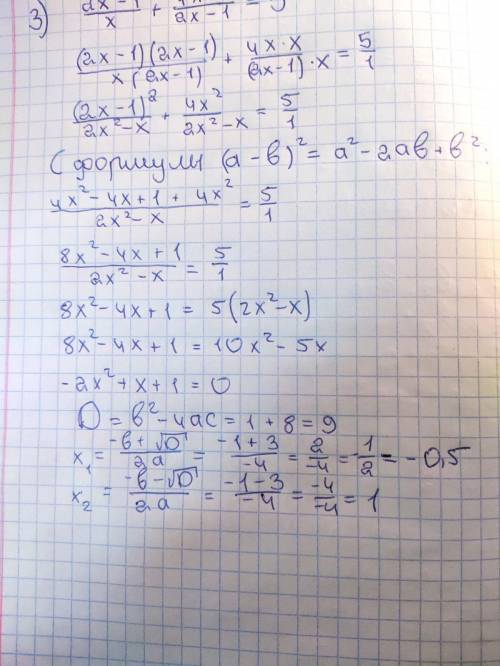 3) (2x-1)/x + 4x/(2x-1) = 5
(2x-1)(2x-1)/x(2x-1) + 4x·x/(2x-1)·x = 5/1
(2x-1)²/2x²-x + 4x²/2x²-x = 5/1
( формулы (a-b)² = a²-2ab+b².
4x²-4x+1+4x²/2x²-x = 5/1
8x²-4x+1/2x²-x = 5/1
8x²-4x+1 = 5(2x²-x)
8x²-4x+1 = 10x²-5x
-2x²+x+1=0
D = b²-4ac = 1+8=9
x₁ = -b+√D/2a = -1+3/-4 = 2/-4 = -1/2 = -0,5
x₂ = -b-√D/2a = -1-3/-4 = -4/-4 = 1